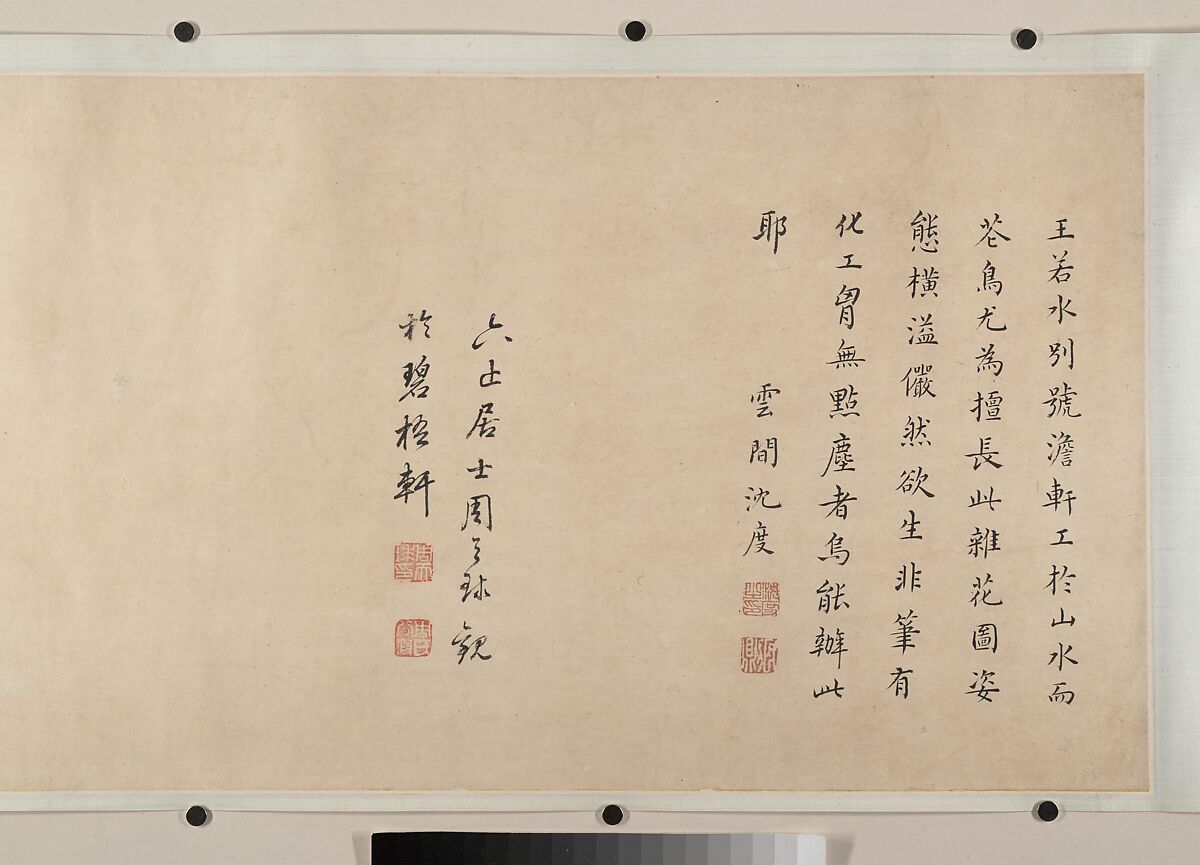 王若水別號澹軒工於山水而
苍鳥尤為擅長此雜花圖姿
態橫溢儼然欲生非筆有
化工胷無點塵者烏能辦此
耶
雲間沈度
六止居士周天球觀
於碧梧軒